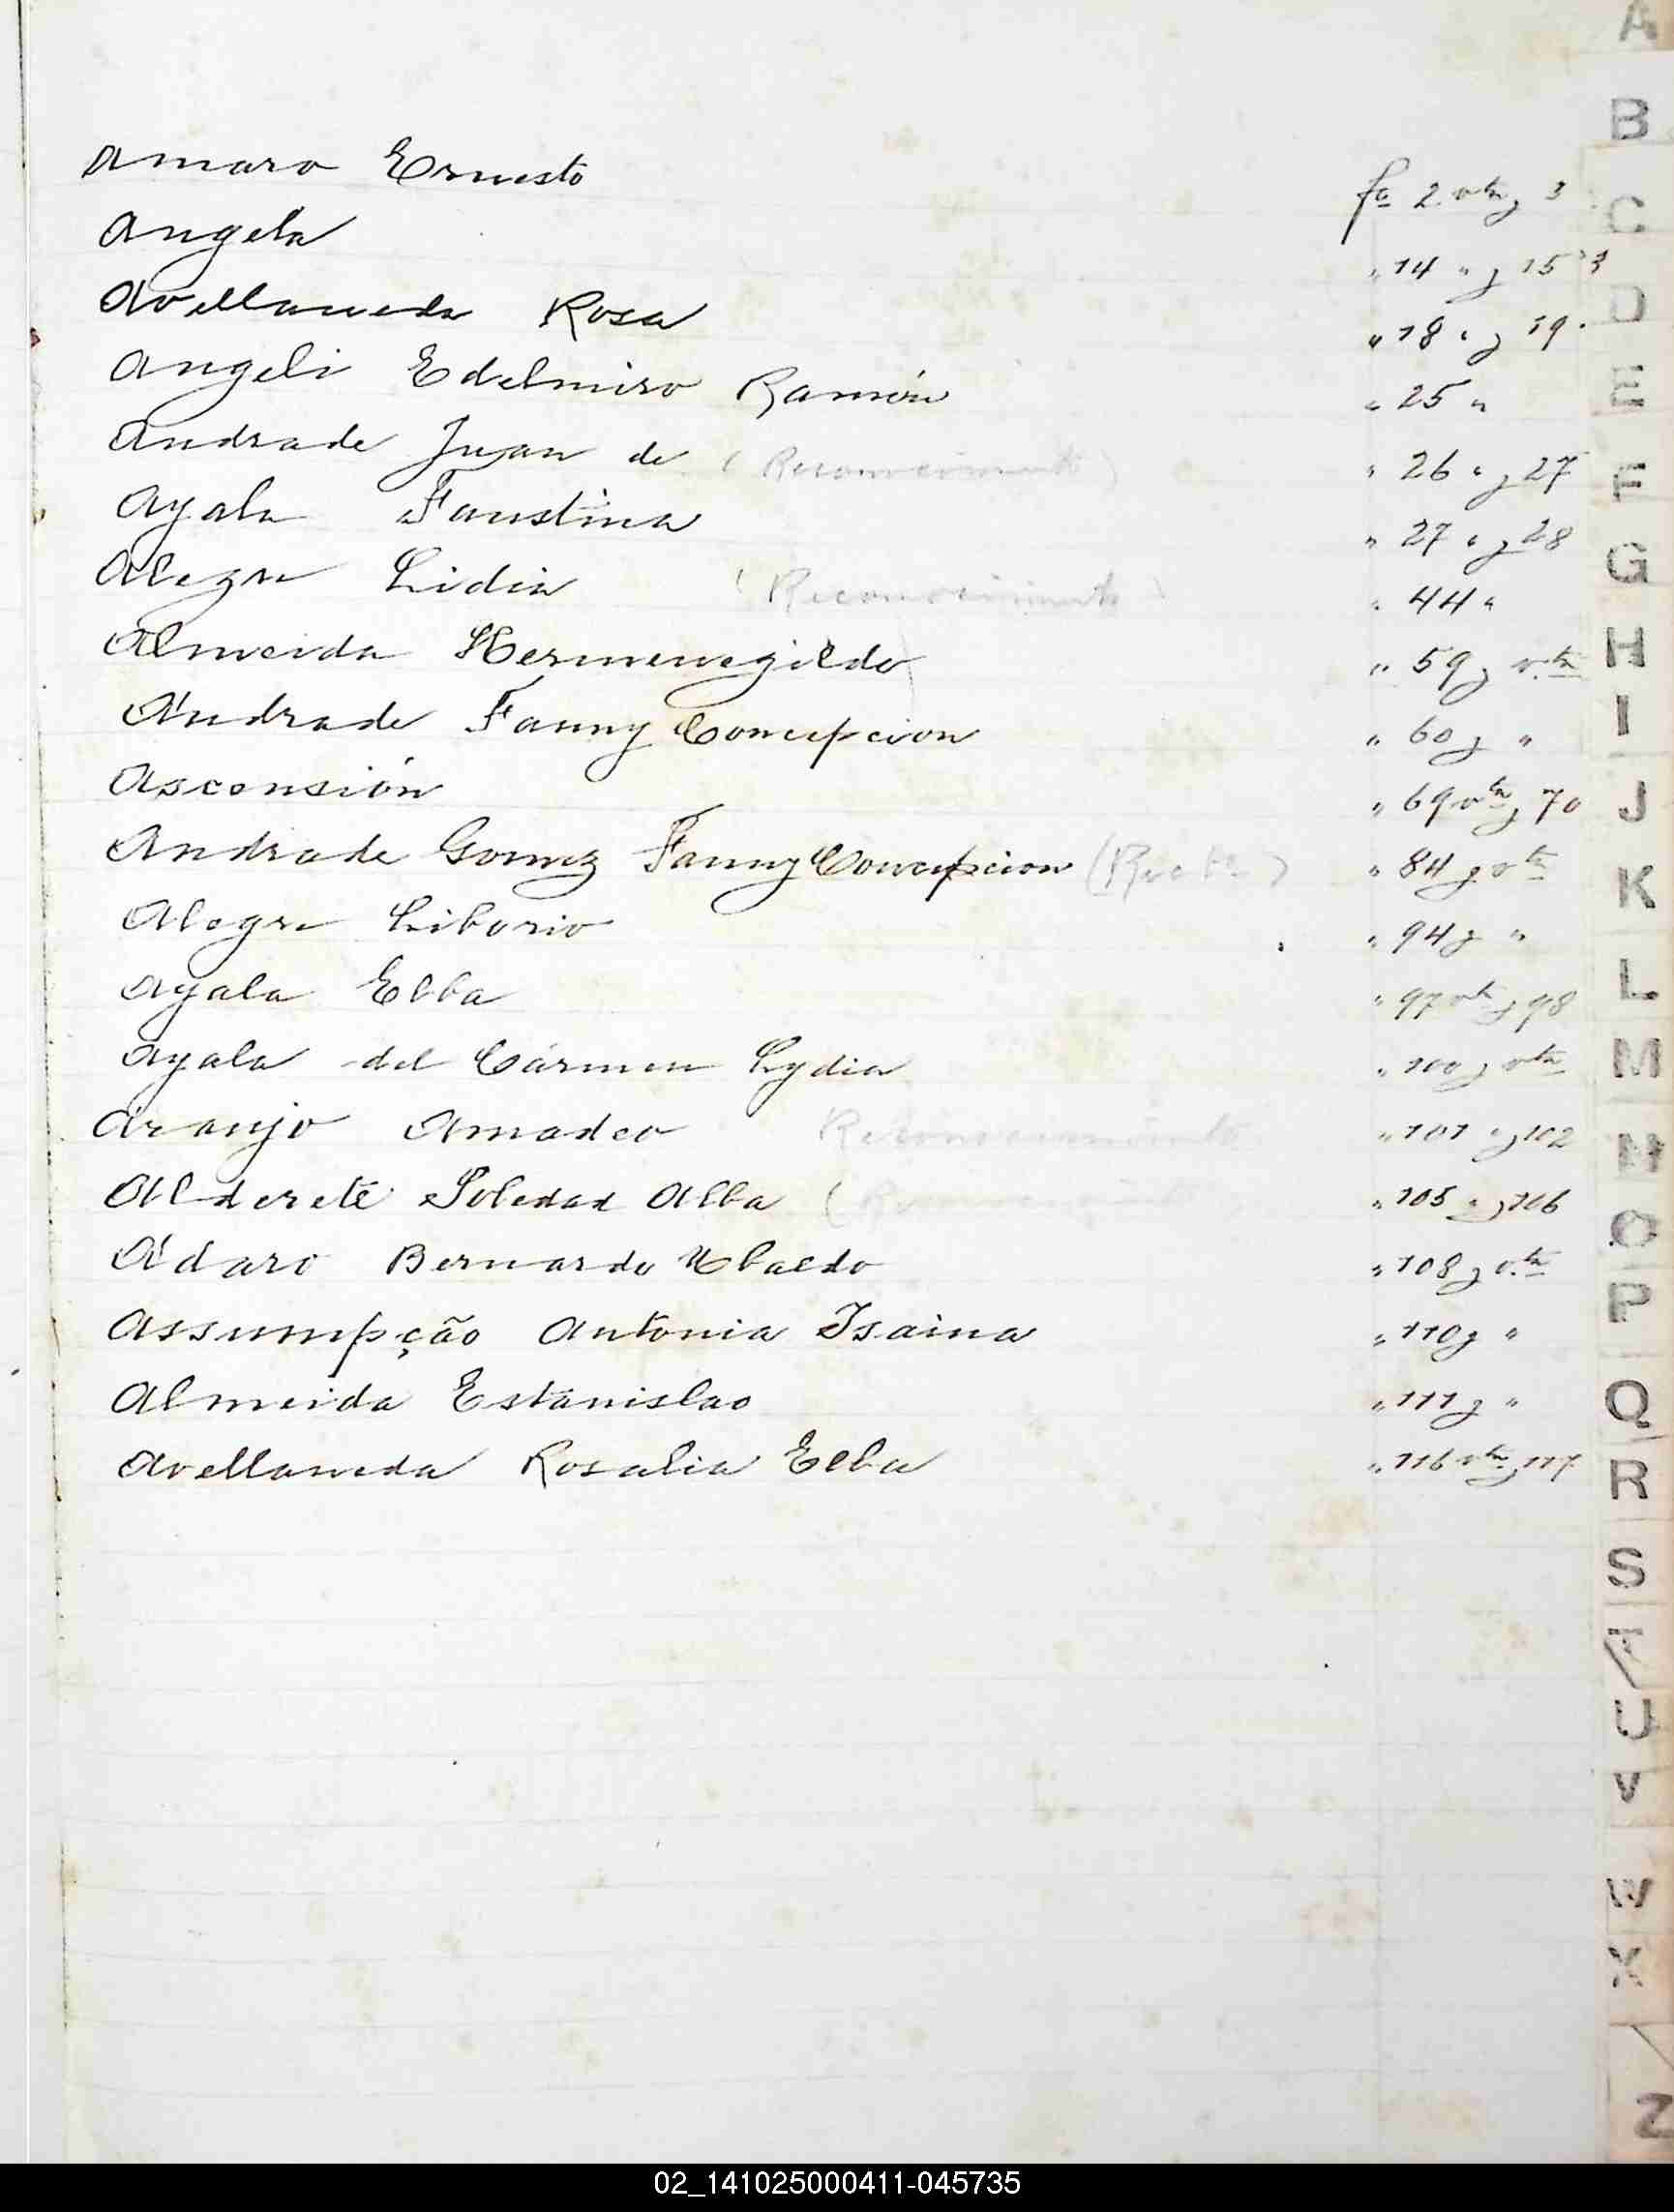 Amaro Ernesto fa 2 vta y 3
Angela " 14 " y 15
Avellaneda Rosa " 18 " y 19
Angeli Edelmiro Ramón " 25 "
Andrade Juan de (Reconocimiento) " 26 " y 27
Ayala Faustina " 27 " y 28
Alegre Lidia (Reconocimiento) " 44 "
Almeida Hermenegildo " 59 y vta
Andrade Fanny Concepcion " 60 y "
Ascensión " 69 vta y 70
Andrade Gomez Fanny Concepcion " 84 y vta
Alegre Liborio " 94 y "
Ayala Elba " 97 vta y 98
Ayala del Cármen Lydia " 100 y vta
Araujo Amadeo Reconocimiento " 101 " y 102
Alderete Soledad Alba " 105 " y 106
Adaro Bernardo Ubaldo " 108 y vta
Assumpção Antonia Isaina " 110 y "
Almeida Estanislao " 111 y "
Avellaneda Rosalia Elba " 116 vta y 117
A
B
C
D
E
F
G
H
I
J
K
L
M
N
O
P
Q
R
S
T
U
V
W
X
Z
02_141025000411-045735